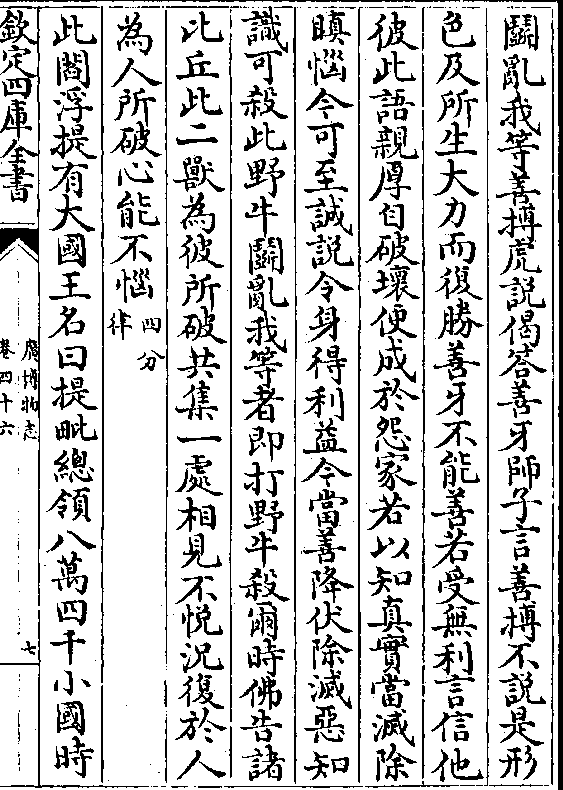 鬬亂我等善搏虎說偈答善牙師子言善搏不說是形
色及所生大力而復勝善牙不能善若受無利言信他
彼此語親厚自破壞便成於怨家若以知真實當滅除
瞋惱今可至誠說令身得利益今當善降伏除滅惡知
識可殺此野牛鬬亂我等者即打野牛殺爾時佛告諸
比丘此二獸為彼所破共集一處相見不悅況復於人
為人所破心能不惱四分律
此閻浮提有大國王名曰提毗總領八萬四千小國時
欽定四庫全書
廣博物志
卷四十六
七